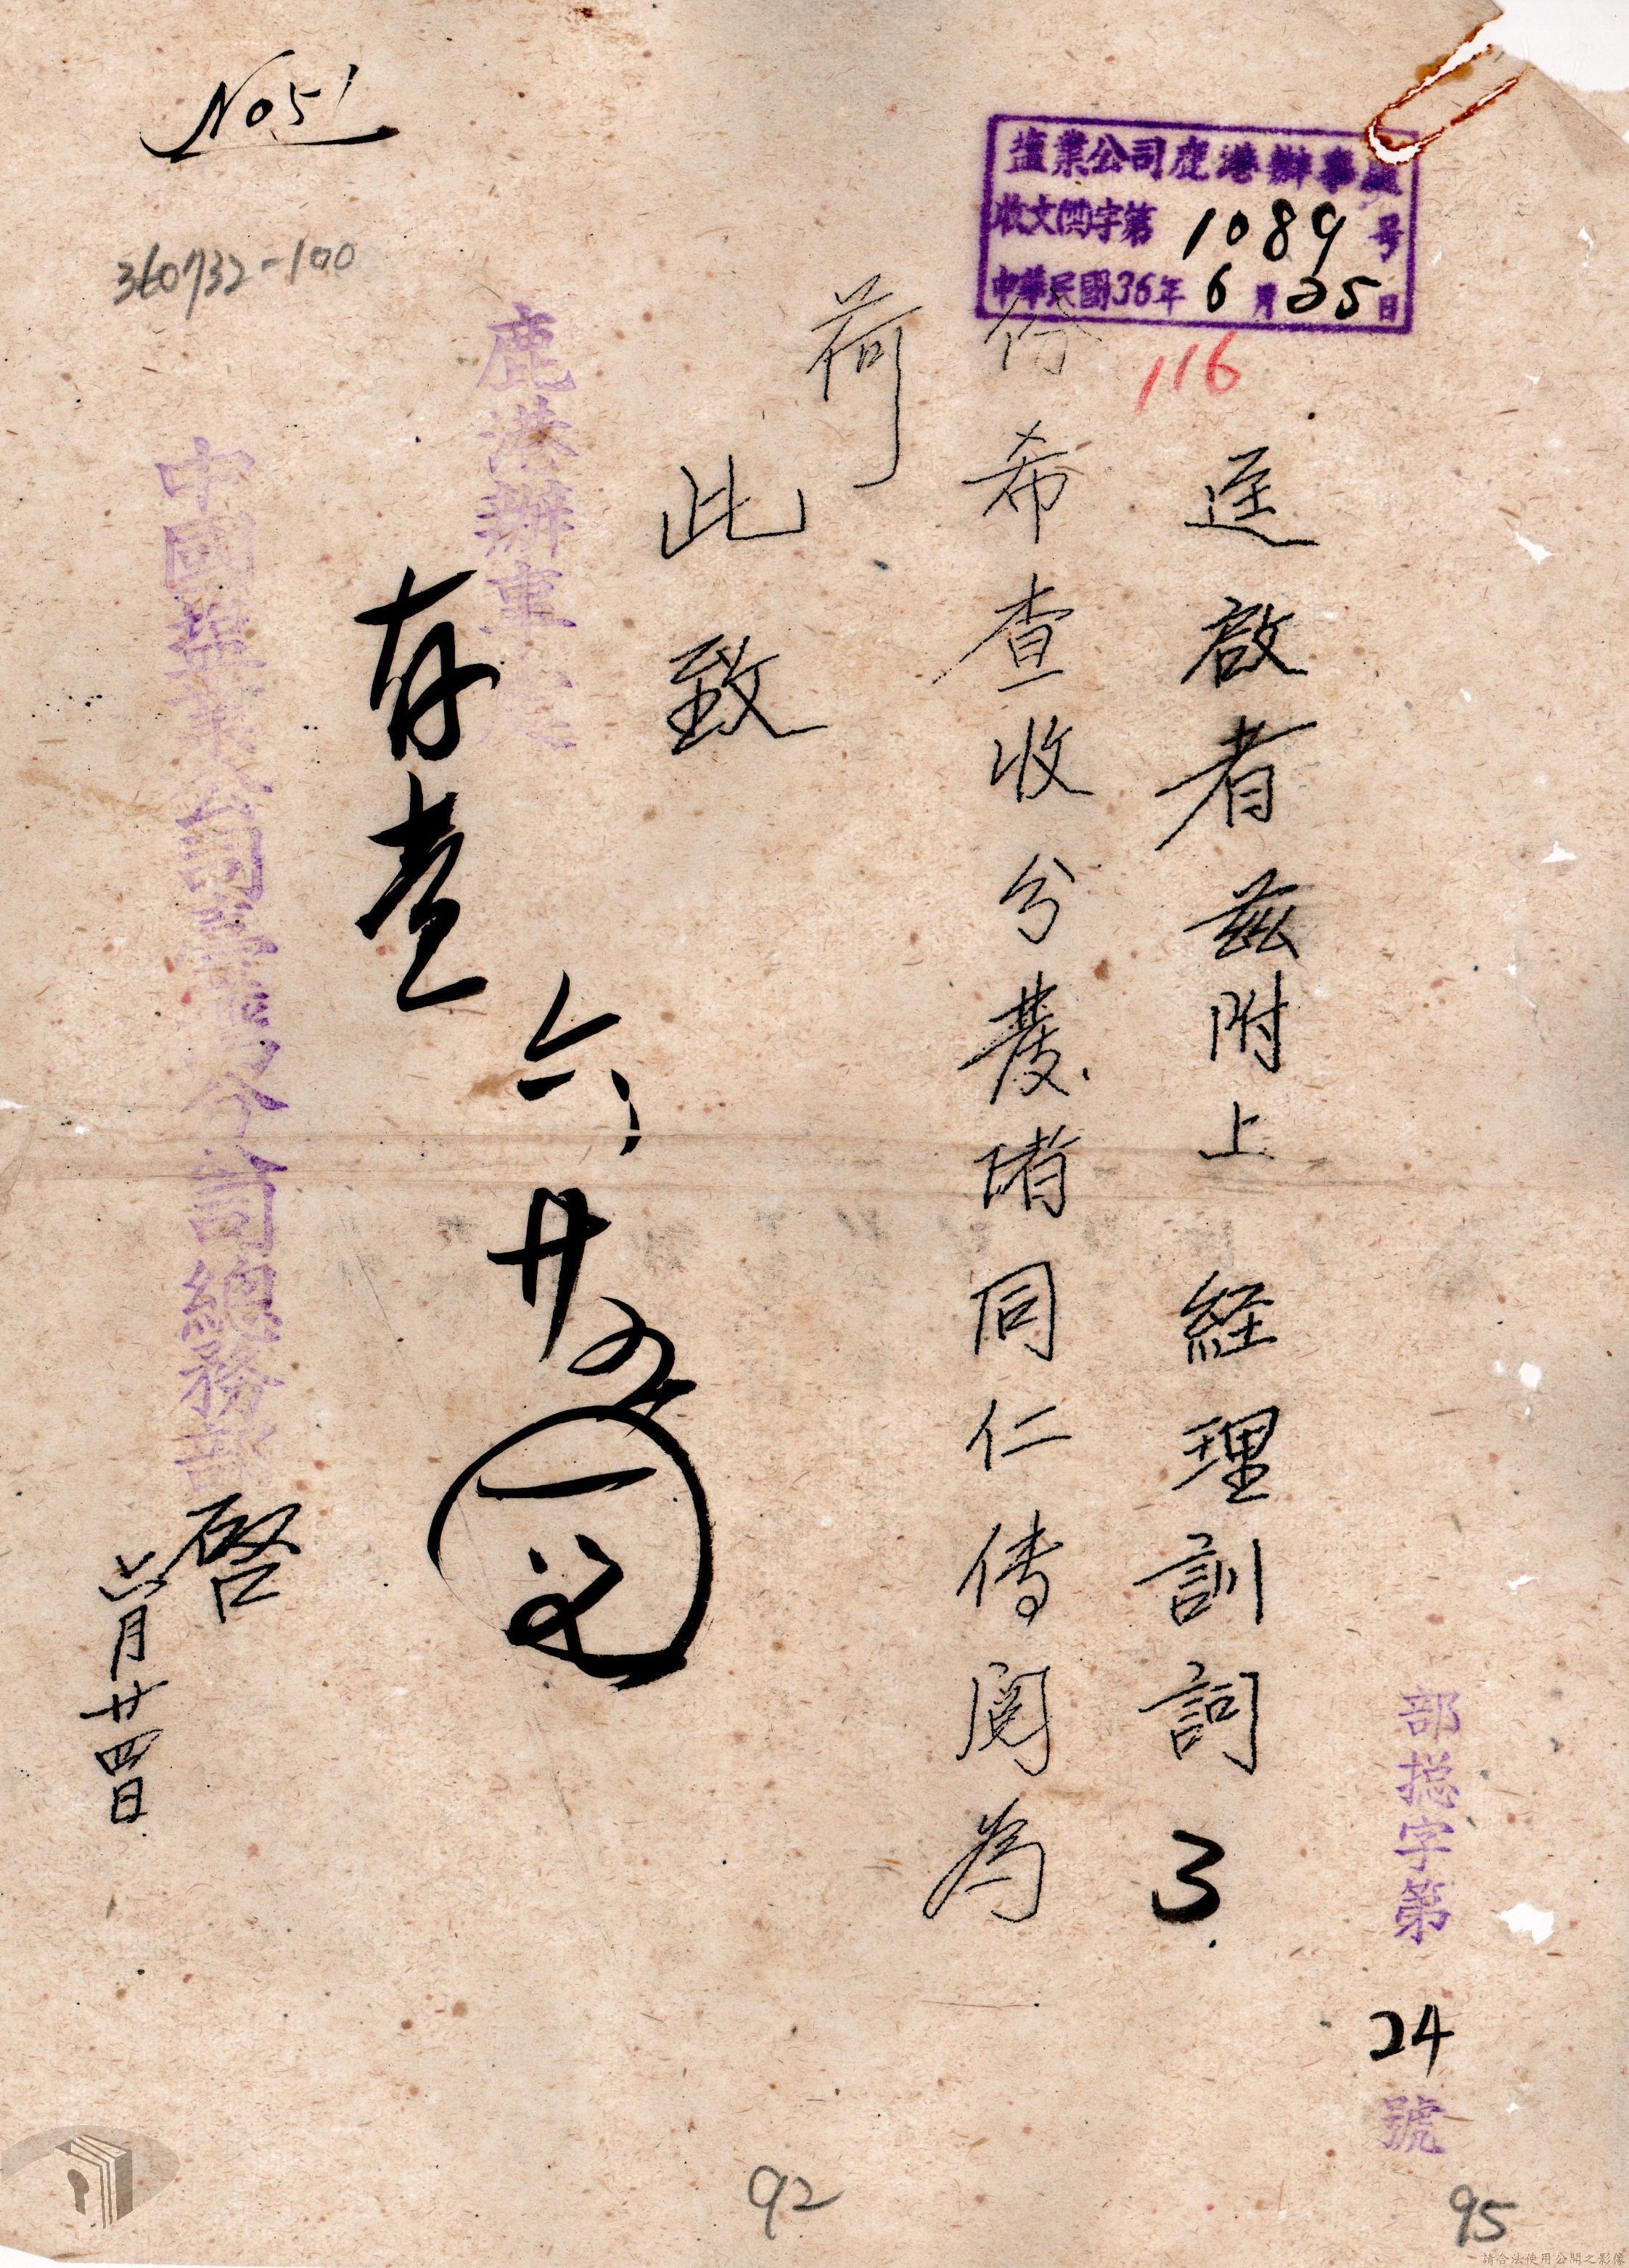 No51
360732-100
塩業公司鹿港辦事處
收文(雪)字第1089号
中華民國36年6月25日
116
部総字第24號
逕啟者兹附上 経理訓詞3
份希查收分發諸同仁傳閱為
荷
此致
鹿港辦事
存查
六、廿五
中國鹽業公司
公司總務
啓
六月廿四日
92
95
請合法使用公開之影像